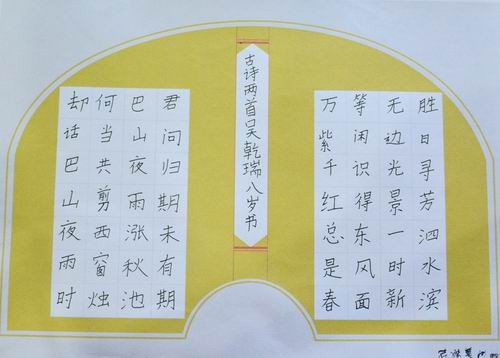 胜日寻芳泗水滨
无边光景一时新
等闲识得东风面
万紫千红总是春
古诗两首吴乾瑞八岁书
君问归期未有期
巴山夜雨涨秋池
何当共剪西窗烛
却话巴山夜雨时